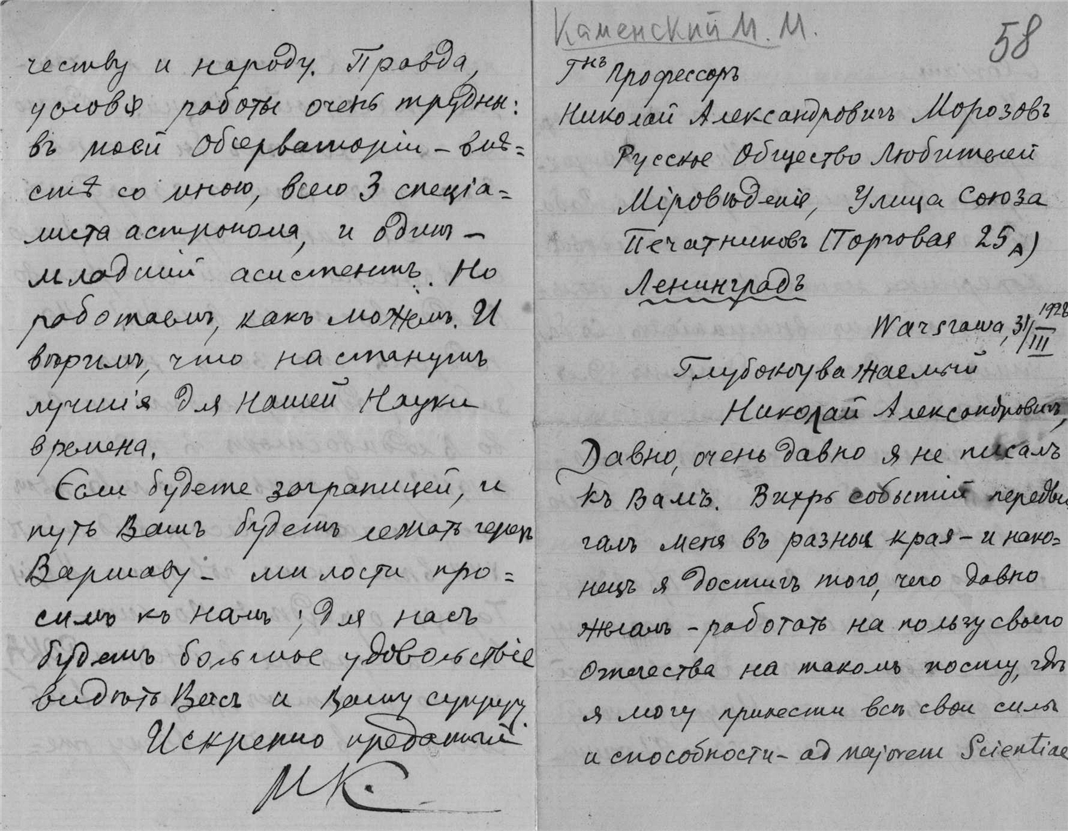 честву и народу. Правда,
условія работы очень трудны:
въ моей Обсерваторіи – вмѣ=
стѣ со мною, всего 3 спеціа=
листа астронома, и одинъ –
младшій асистентъ. Но
работаемъ, какъ можемъ. И
вѣримъ, что настанутъ
лучшія для нашей Науки
времена.
Если будете заграницей, и
путь Вашъ будетъ лежать черезъ
Варшаву – милости про=
симъ къ намъ; для насъ
будетъ большое удовольствіе
видѣть Васъ и Вашу супругу
Искренно преданный
МК.
Каменский М. М.
58
Гнъ Профессоръ
Николай Александровичъ Морозовъ
Русское Общество Любителей
Міровѣденія, Улица Союза
Печатниковъ (Торговая 25А)
Ленинградъ
Warszawa, 31/III 1928
Глубокоуважаемый
Николай Александровичъ,
Давно, очень давно я не писалъ
къ Вамъ. Вихрь событій передви
галъ меня въ разные края – и нако=
нецъ я достигъ того, чего давно
желалъ – работать на пользу своего
отечества на такомъ посту, гдѣ
я могу принести всѣ свои силы
и способности – ad majorem Scientiae